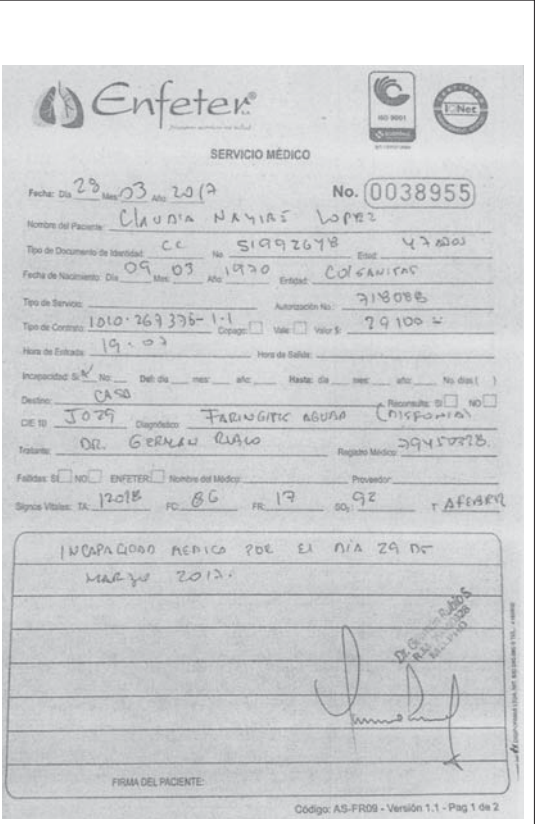 Enfeter
ISO 9001
IQNet
SERVICIO MÉDICO
Fecha: Día 28 Mes: 03 Año 2017 No. 0038955
Nombre del Paciente: CLAUDIA NAYIBE LOPEZ
Tipo de Documento de Identidad: CC No. 51992648 Edad: 47 AÑOS
Fecha de Nacimiento: Día 09 Mes: 03 Año: 1970 Entidad: COLSANITAS
Tipo de Servicio: Autorización No.: 718088
Tipo de Contrato: 1010-269376-1-1 Copago: Vale: Valor $: 29100 =
Hora de Entrada: 19:07 Hora de Salida:
Incapacidad: Si: X No: Del: día mes: año: Hasta: día mes: año: No. días ( )
Destino: CASA Reconsulta: SI NO
CIE 10 J029 Diagnóstico: FARINGITIS AGUDA (DISFONIA)
Tratante: DR. GERMAN Registro Médico: 79450328.
Fallidas: SI NO ENFETER: Nombre del Médico: Proveedor:
Signos Vitales: TA: 120/8 FC: 86 FR: 17 SO2: 92 T AFEBRIL
INCAPACIDAD MEDICA POR EL DIA 29 DE
MARZO 2017.
Dr. Germán Rubio S.
FIRMA DEL PACIENTE:
Código: AS-FR09 - Versión 1.1 - Pag 1 de 2